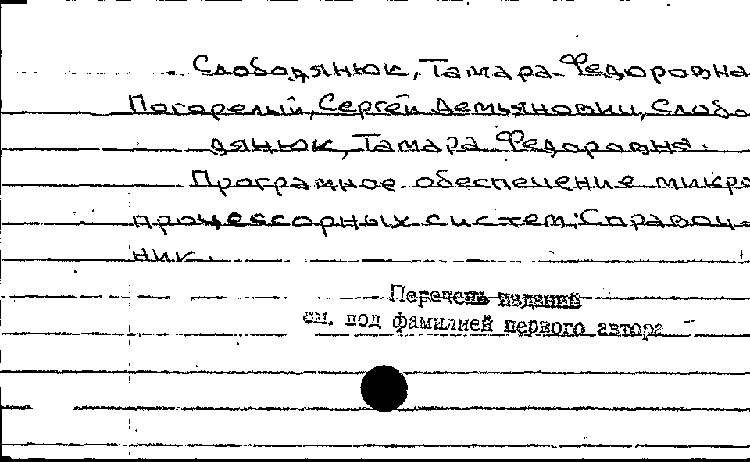 Слободянюк, Тамара Федоровна
Погорелый, Сергей Демьянович, Слобо
дянюк, Тамара Федоровна.
Програмное обеспечение микро
процессорных систем: Справоч-
ник.
Перечень изданий
см. под фамилией первого автора